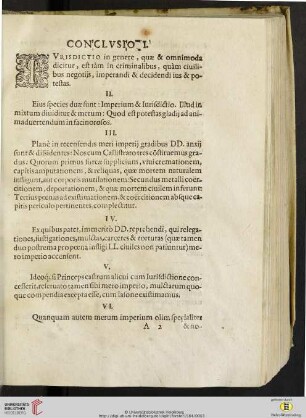 CONCLVSIO I.
IVRISDICTIO in genere, quæ & omnimoda
dicitur, est tàm in criminalibus, quàm ciuili-
bus negotijs, imperandi & decidendi ius & po-
testas.
II.
Eius species duæ sunt: Imperium & Iurisdictio. Illud in
mixtum diuiditur & merum: Quod est potestas gladij ad ani-
maduertendum in facinorosos.
III.
Planè in recensendis meri imperij gradibus DD. anxij
sunt & dissidentes: Nos cum Callistrato tres constituimus gra-
dus: Quorum primus furcæ suspensionem, viui cremationem,
capitis amputationem, & reliquas, quæ mortem naturalem
infligunt, aut corporis mutilationem. Secundus metalli coër-
citionem, deportationem, & quæ mortem ciuilem inferunt:
Tertius pœnas ad existimationem, & coërcitionem absque
capitis periculo pertinentes, complectitur.
IV.
Ex quibus patet, immeritò DD. reprehendi, qui relega-
tiones, fustigationes, mulctas, carceres & torturas (quæ tamen
duas postremas pro pœna infligi LL. ciuiles non patiuntur) me-
ro imperio accensent.
V.
Ideoq; si Princeps castrum alicui cum Iurisdictione con-
cesserit, referuato tamen sibi mero imperio, mulctarum quo-
que compendia excepta esse, cum Iasone existimamus.
VI.
Quanquam autem merum imperium olim specialiter
A 2 & no-
UNIVERSITÄTS-
BIBLIOTHEK
HEIDELBERG
© Universitätsbibliothek Heidelberg